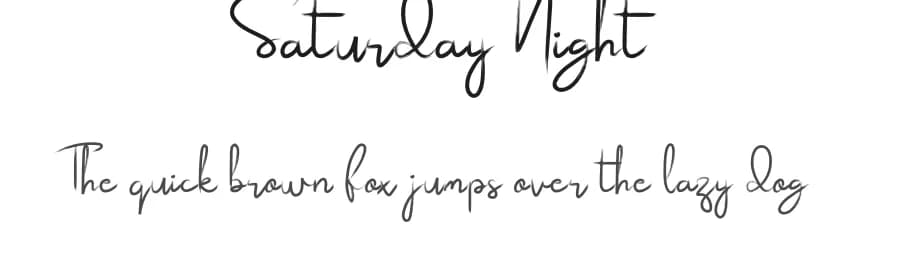 Saturday Night
The quick brown fox jumps over the lazy dog